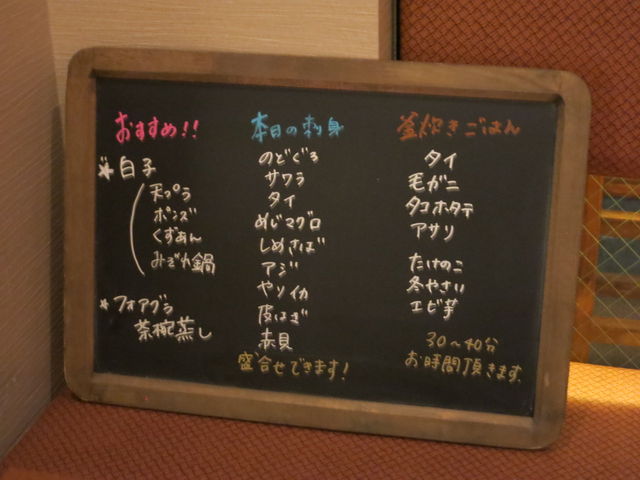 おすすめ!!
*白子
天ぷら
ポンズ
くずあん
みぞれ鍋
*フォアグラ
茶碗蒸し
本日の刺身
のどぐろ
サワラ
タイ
めじマグロ
しめさば
アジ
ヤリイカ
皮はぎ
赤貝
盛合せできます!
釜炊きごはん
タイ
毛ガニ
タコホタテ
アサリ
たけのこ
冬やさい
エビ芋
30〜40分
お時間頂きます.